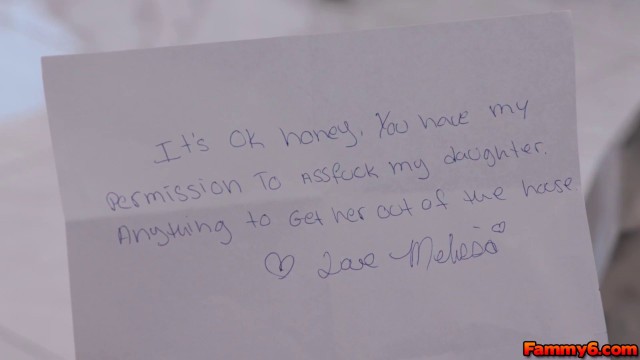 It's OK honey. You have my
permission To Assfuck my daughter.
Anything to Get her out of the house
Love Melissa
Fammy6.com